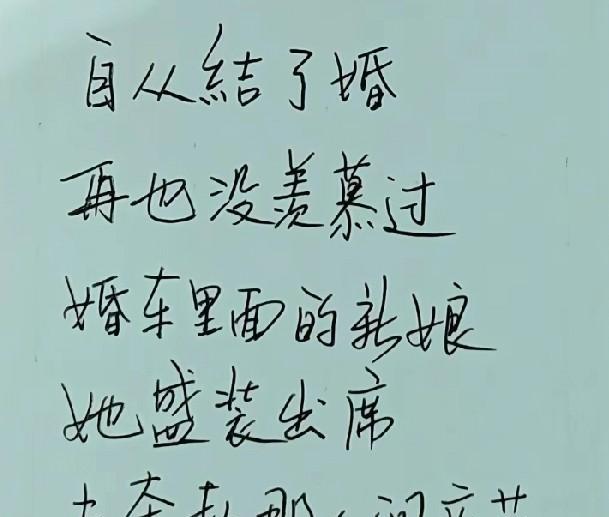 自从結了婚
再也没羡慕过
婚车里面的新娘
她盛装出席